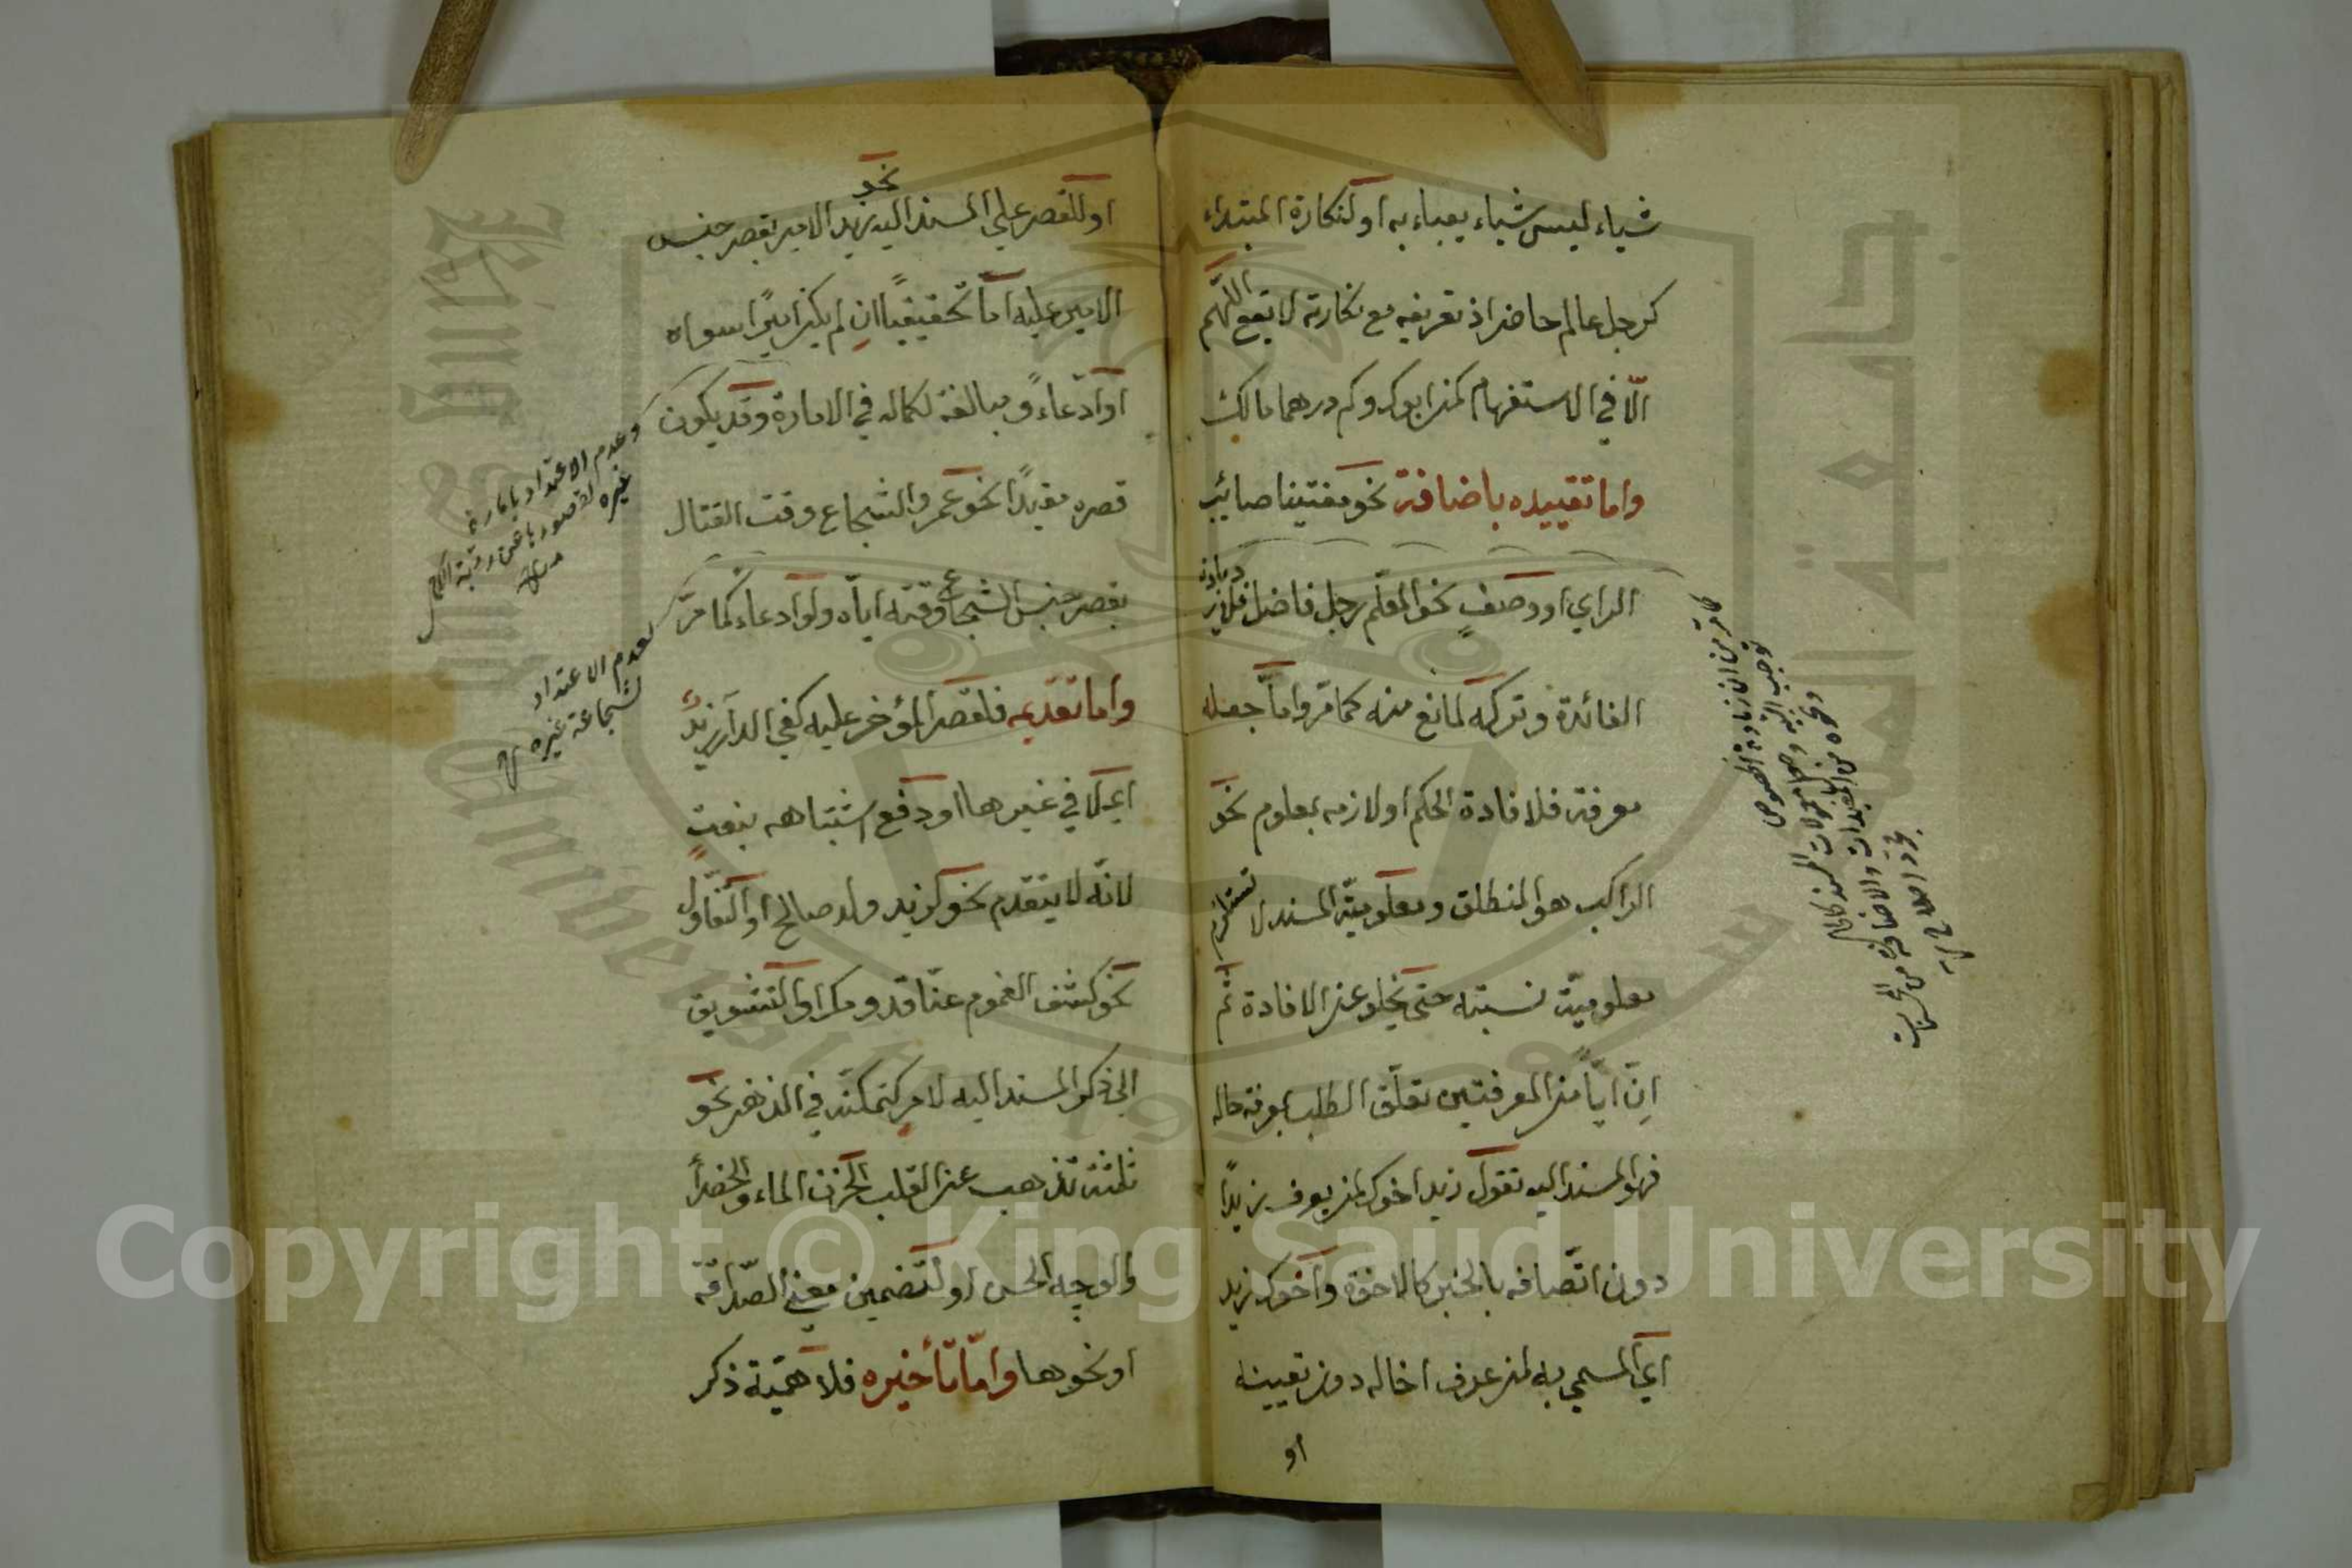 شياء ليس شياء يعباء به او لنكارة المبتداء
كرجل عالم حاضر اذ تعريفه مع نكارته لا يقع اللهم
الّا في الاستفهام كمن ابوك وكم درهما مالك
واما تقييده باضافة نحو مفتينا صائب
الراي او وصف نحو المعلم رجل فاضل فلازدياده
الفائدة وتركه لمانع منه كما مرّ واما جعله
معرفة فلافادة الحكم او لازمه بمعلوم نحو
الراكب هو المنطلق ومعلوميّة المسند لا تستلزم
معلوميّة نسبته حتى يخلو عن الافادة ثم
انّ ايّاً من المعرفتين تعلّق الطلب بمعرفة حاله
فهو المسند اليه تقول زيد اخوك لمن يعرف زيداً
دون اتّصافه بالخبر كالاخوة واخوك زيد
اي المسمى به لمن عرف اخا له دون تعيينه
او
او للقصر على المسند اليه نحو زيد الامير بقصر جنس
الامير عليه امّا تحقيقيّاً ان لم يكن اميرًا سواه
او ادّعاءً ومبالغة لكماله في الامارة وقد يكون
قصره مقيدًا نحو عمرو الشجاع وقت القتال
بقصر جنس الشجاع وقته اياه ولو ادعاء كما مرّ
واما تقديمه فلقصر المؤخر عليه كفي الدار زيد
اي لا في غيرها او دفع اشتباهه بنعت
لانّه لا يتقدم نحو كزيد ولد صالح او التفاؤل
نحو كشف الغموم عنّا قدومك او التشويق
الى ذكر المسند اليه لامر كتمكنه في الذهن نحو
ثلثة تذهب عن القلب الحزن الماء والخضرا
والوجه الحسن او لتضمين معنى الصداقة
او نحوها وامّا تأخيره فلاهمّية ذكر
وعدم الاعتداد بامارة
غيره لقصورها عن رتبة الكمال
لعدم الاعتداد
بشجاعة غيره